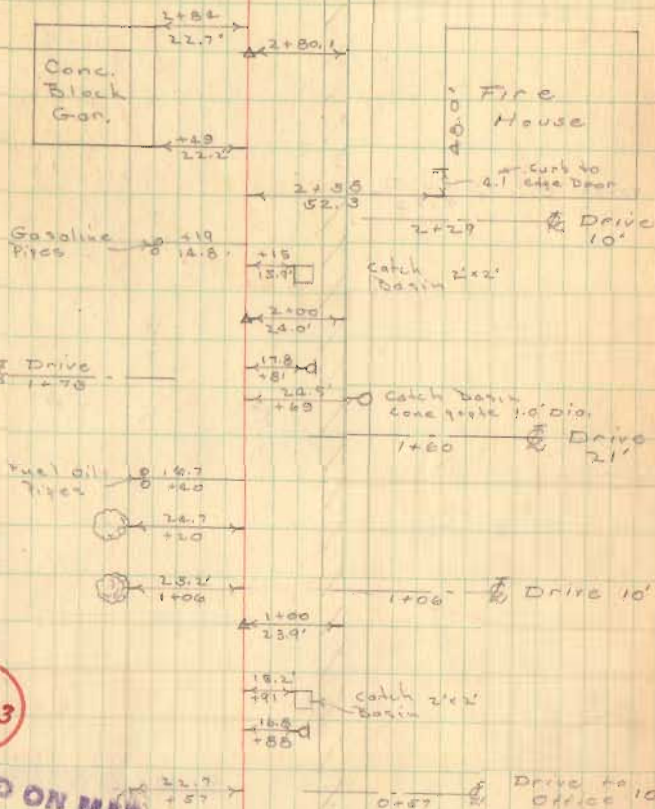 2+84
22.7'
2+80.1
Conc.
Block
Gar.
Fire
House
+49
22.2'
Curb to
4.1 edge Door
2+35
52.3
2+29
Drive
10'
Gasoline
Pipes
+19
14.8'
+15
15.9'
Catch 2'x2'
Basin
2+00
24.0'
17.8
+81
Drive
1+78
24.5'
+69
Catch Basin
1.0' Dia.
1+60
Drive
21'
Fuel Oil
Pipes
+40
24.7
+20
23.2'
1+06
1+06
Drive 10'
1+00
23.9'
18.2'
+91
Catch 2'x2'
Basin
16.8
+88
22.7
+57
0+57
Drive to
Office 10
3
D ON